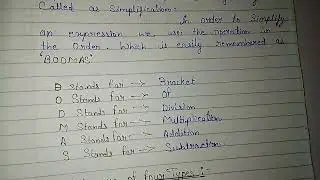 Called as Simplification :-
In order to Simplify
an expression we use the operation in
the Order. which is easily remembered as
'BODMAS'
B Stands for --> Bracket
O Stands for --> Of
D Stands for --> Division
M Stands for --> Multiplication
A Stands for --> Addition
S Stands for --> Subtraction
of four Types :-